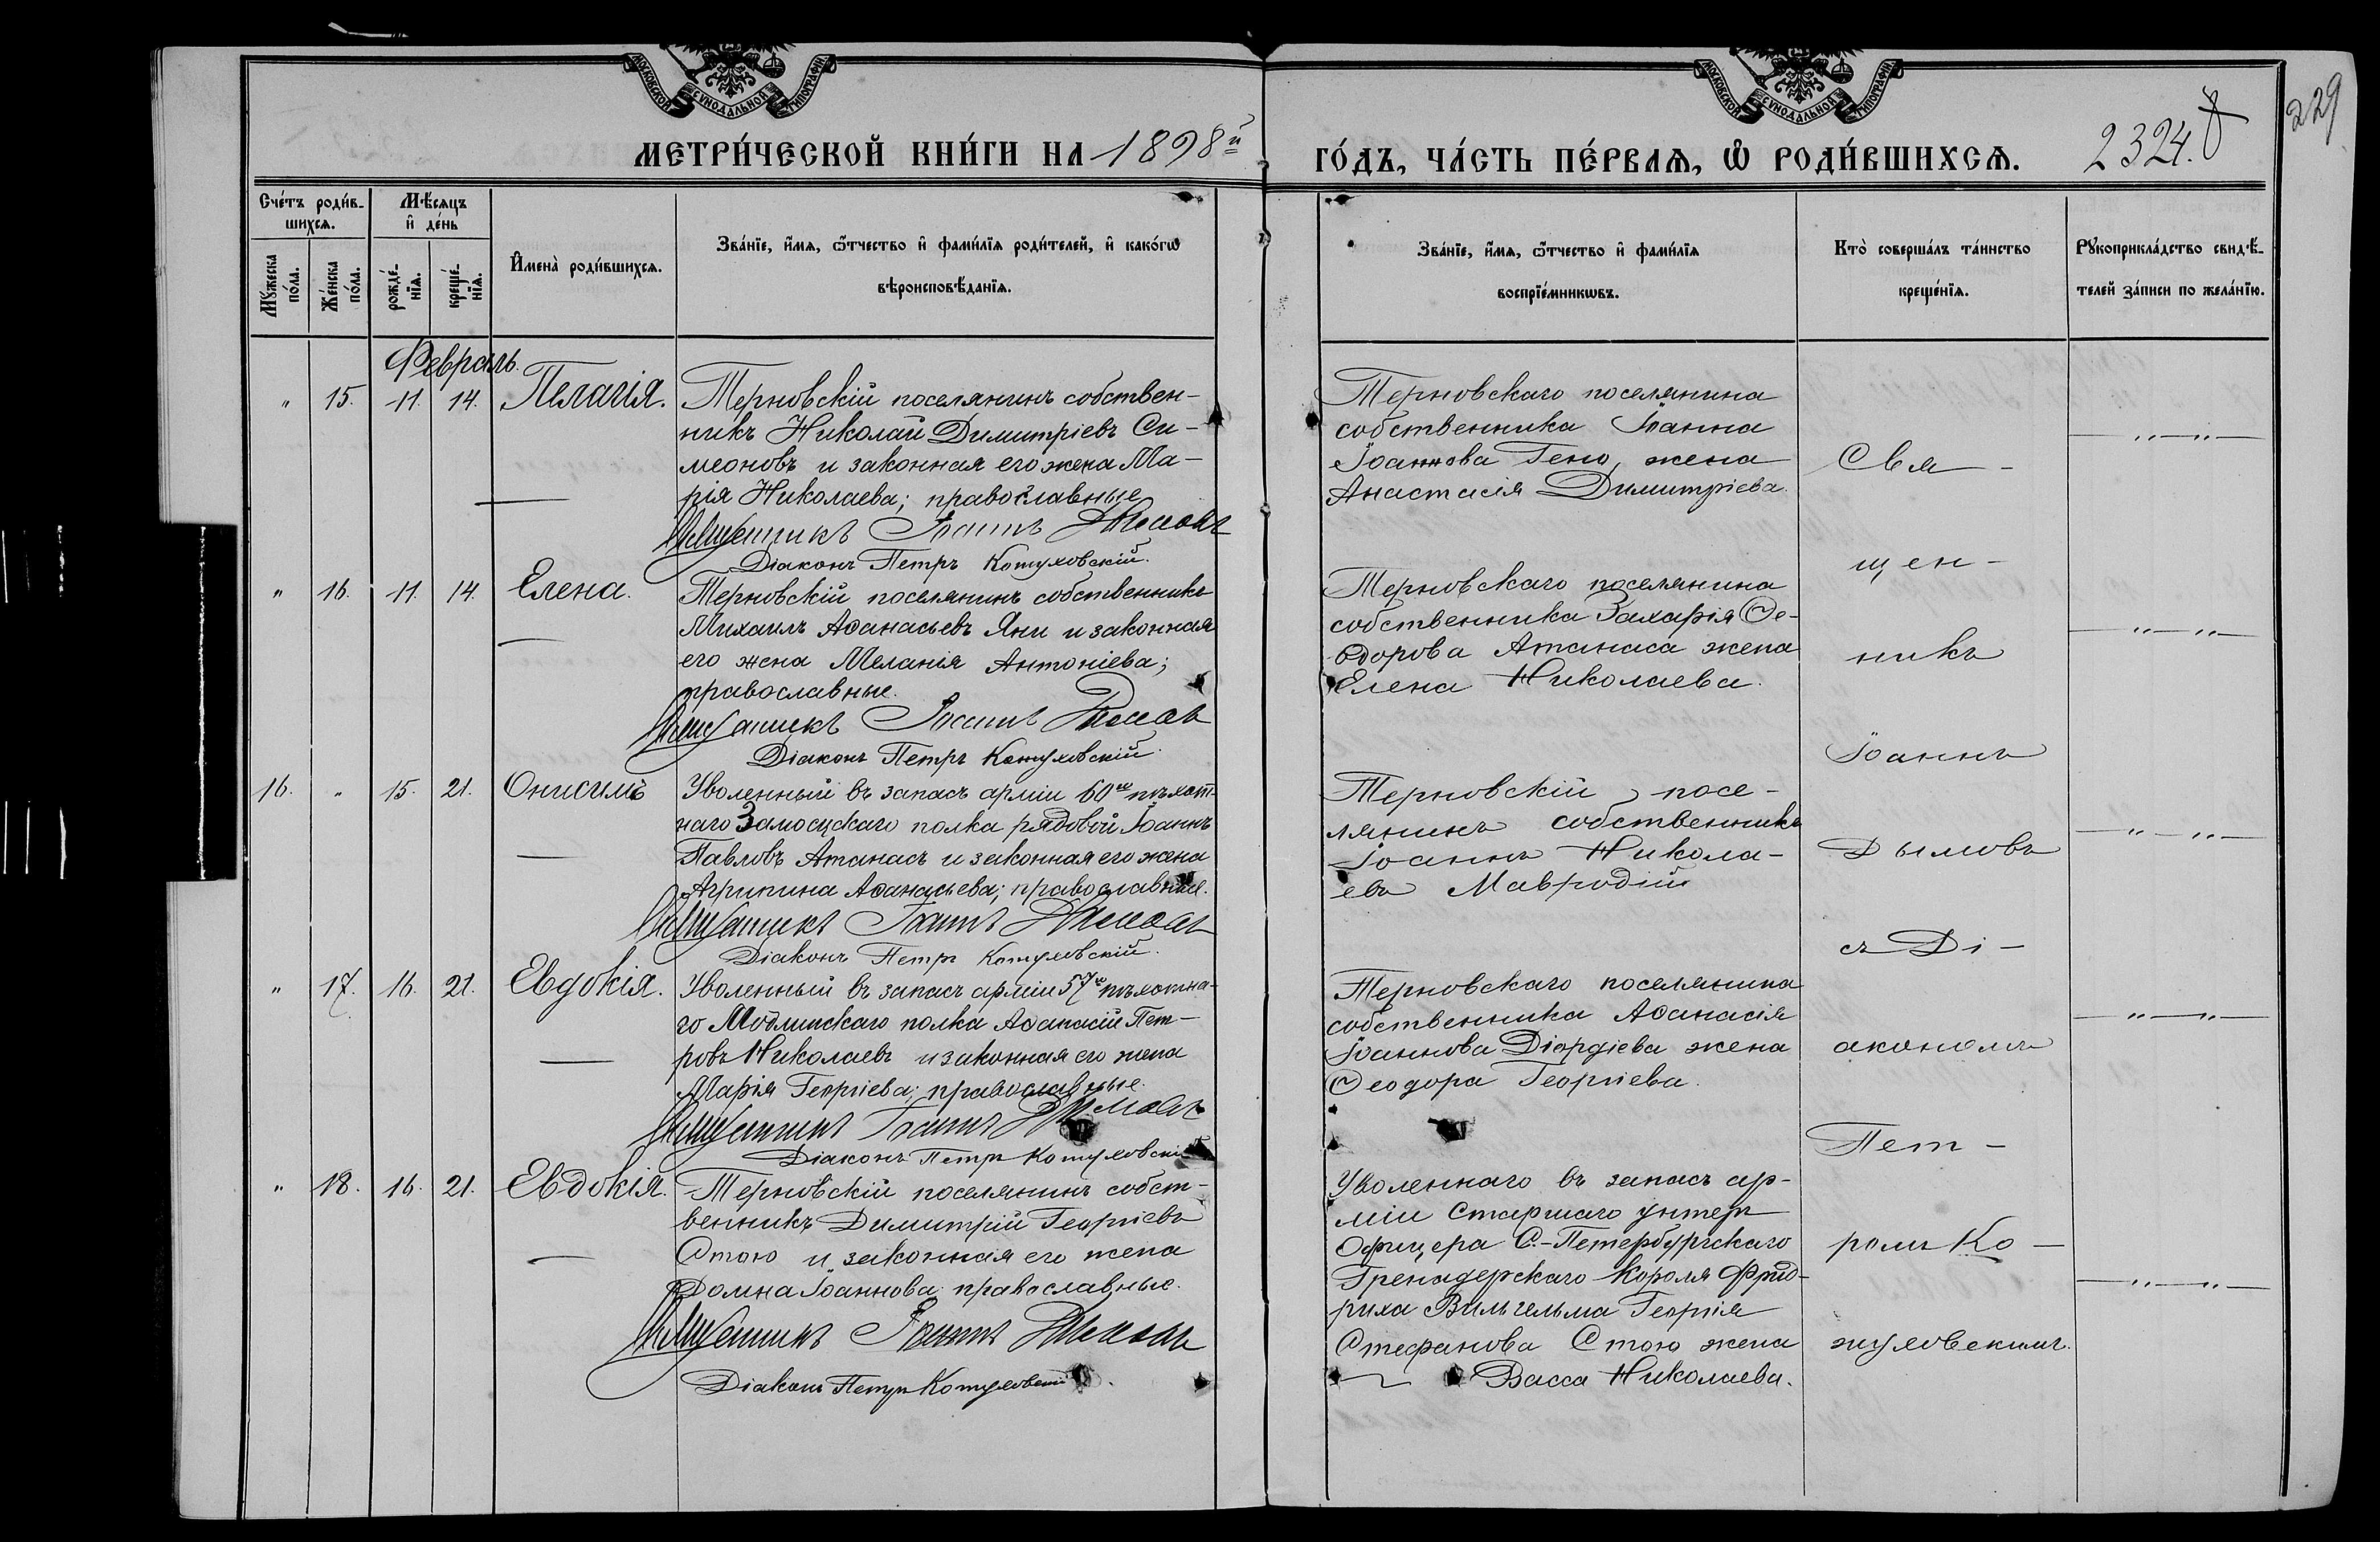 МОСКОВСКОЙ СУНОДАЛЬНОЙ ТИПОГРАФІИ
МОСКОВСКОЙ СУНОДАЛЬНОЙ ТИПОГРАФІИ
229
МЕТРИ́ЧЕСКОЙ КНИ́ГИ НА 1898й
ГО́ДЪ, ЧА́СТЬ ПЕ́РВАѦ, Ѡ҆ РОДИ́ВШИХСѦ.
2324.
Сче́тъ роди́в-
шихсѧ.
Мѣ́сѧцъ
и҆ де́нь
Мꙋ́жеска
по́ла.
Же́нска
по́ла.
рожде́-
нїѧ.
креще́-
нїѧ.
И҆мена̀ роди́вшихсѧ.
Зва́нїе, и҆́мѧ, ѻ҆́тчество и҆ фами́лїѧ роди́телей, и҆ како́гѡ
вѣроисповѣ́данїѧ.
Зва́нїе, и҆́мѧ, ѻ҆́тчество и҆ фами́лїѧ
воспрїе́мникѡвъ.
Кто̀ соверша́лъ та́инство
креще́нїѧ.
Рꙋкоприкла́дство свидѣ́-
телей за́писи по жела́нїю.
Февраль.
" 15. 11. 14. Пелагія.
Терновскій поселянинъ собствен-
никъ Николай Димитріевъ Си-
меоновъ и законная его жена Ма-
рія Николаева; православные
Священникъ Іоаннъ Дымовъ
Діаконъ Петръ Кожуховскій.
Терновскаго поселянина
собственника Іоанна
Іоаннова Гено, жена
Анастасія Димитріева.
" 16. 11. 14. Елена.
Терновскій поселянинъ собственникъ
Михаилъ Аѳанасьевъ Яни и законная
его жена Меланія Антоніева;
православные.
Священникъ Іоаннъ Дымовъ
Діаконъ Петръ Кожуховскій.
Терновскаго поселянина
собственника Захарія Ѳе-
одорова Атанаса жена
Елена Николаева.
16. " 15. 21. Онисимъ
Уволенный въ запасъ арміи 60го пѣхот-
наго Замосцскаго полка рядовой Іоаннъ
Павловъ Атанасъ и законная его жена
Агрипина Аѳанасьева; православные.
Священникъ Іоаннъ Дымовъ
Діаконъ Петръ Кожуховскій.
Терновскій посе-
лянинъ собственникъ
Іоаннъ Никола-
евъ Мавродій
" 17. 16. 21. Евдокія.
Уволенный въ запасъ арміи 57го пѣхотна-
го Модлинскаго полка Аѳанасій Пет-
ровъ Николаевъ и законная его жена
Марія Георгіева; православные.
Священникъ Іоаннъ Дымовъ
Діаконъ Петръ Кожуховскій
Терновскаго поселянина
собственника Аѳанасія
Іоаннова Діордіева жена
Ѳеодора Георгіева.
" 18. 16. 21. Евдокія.
Терновскій поселянинъ собст-
венникъ Димитрій Георгіевъ
Стою и законная его жена
Домна Іоаннова православные.
Священникъ Іоаннъ Дымовъ
Діаконъ Петръ Кожуховскій.
Уволеннаго въ запасъ ар-
міи Старшаго унтеръ
Офицера С.-Петербургскаго
Гренадерскаго Короля Фрид-
риха Вильгельма Георгія
Стефанова Стою жена
Васса Николаева.
Свя-
щен-
никъ
Іоаннъ
Дымовъ
съ Ді-
акономъ
Пет-
ромъ Ко-
жуховскимъ.